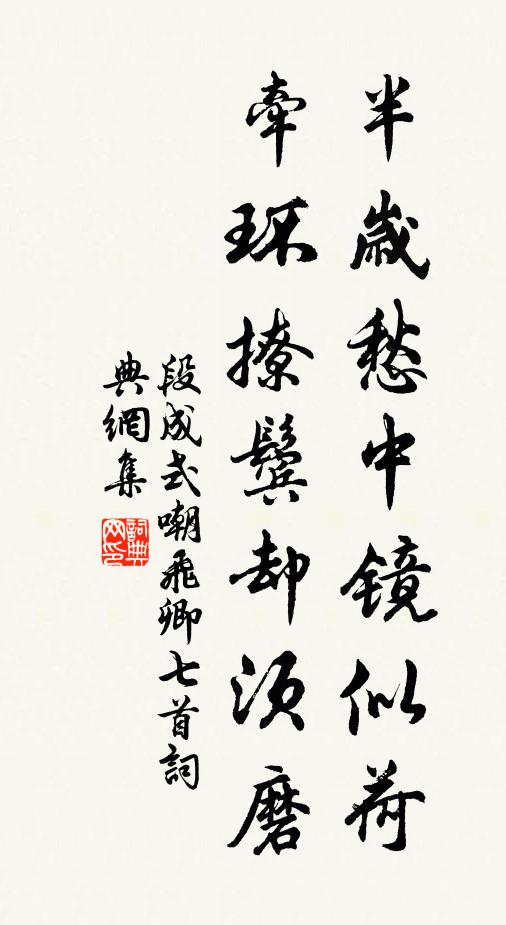 半歲愁中镜似荷
牵环撩鬓却须磨
段成式嘲飛卿七首詞
典網集
詞典网印